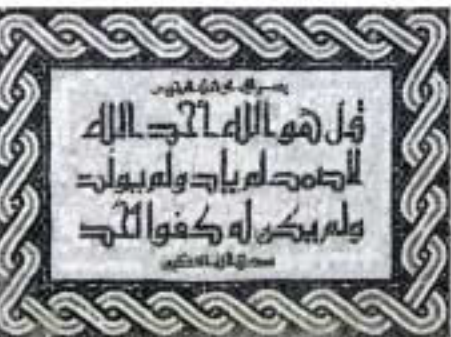 بسم الله الرحمن الرحيم
قل هو الله أحد الله
الصمد لم يلد ولم يولد
ولم يكن له كفوا أحد
صدق الله العظيم